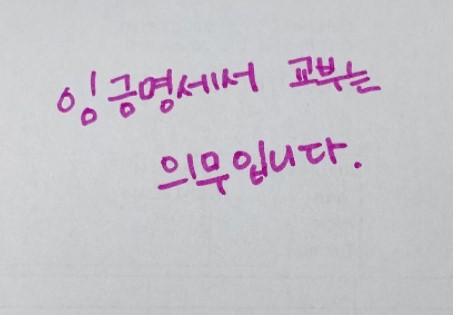 잉금명세서 교부는
의무입니다.